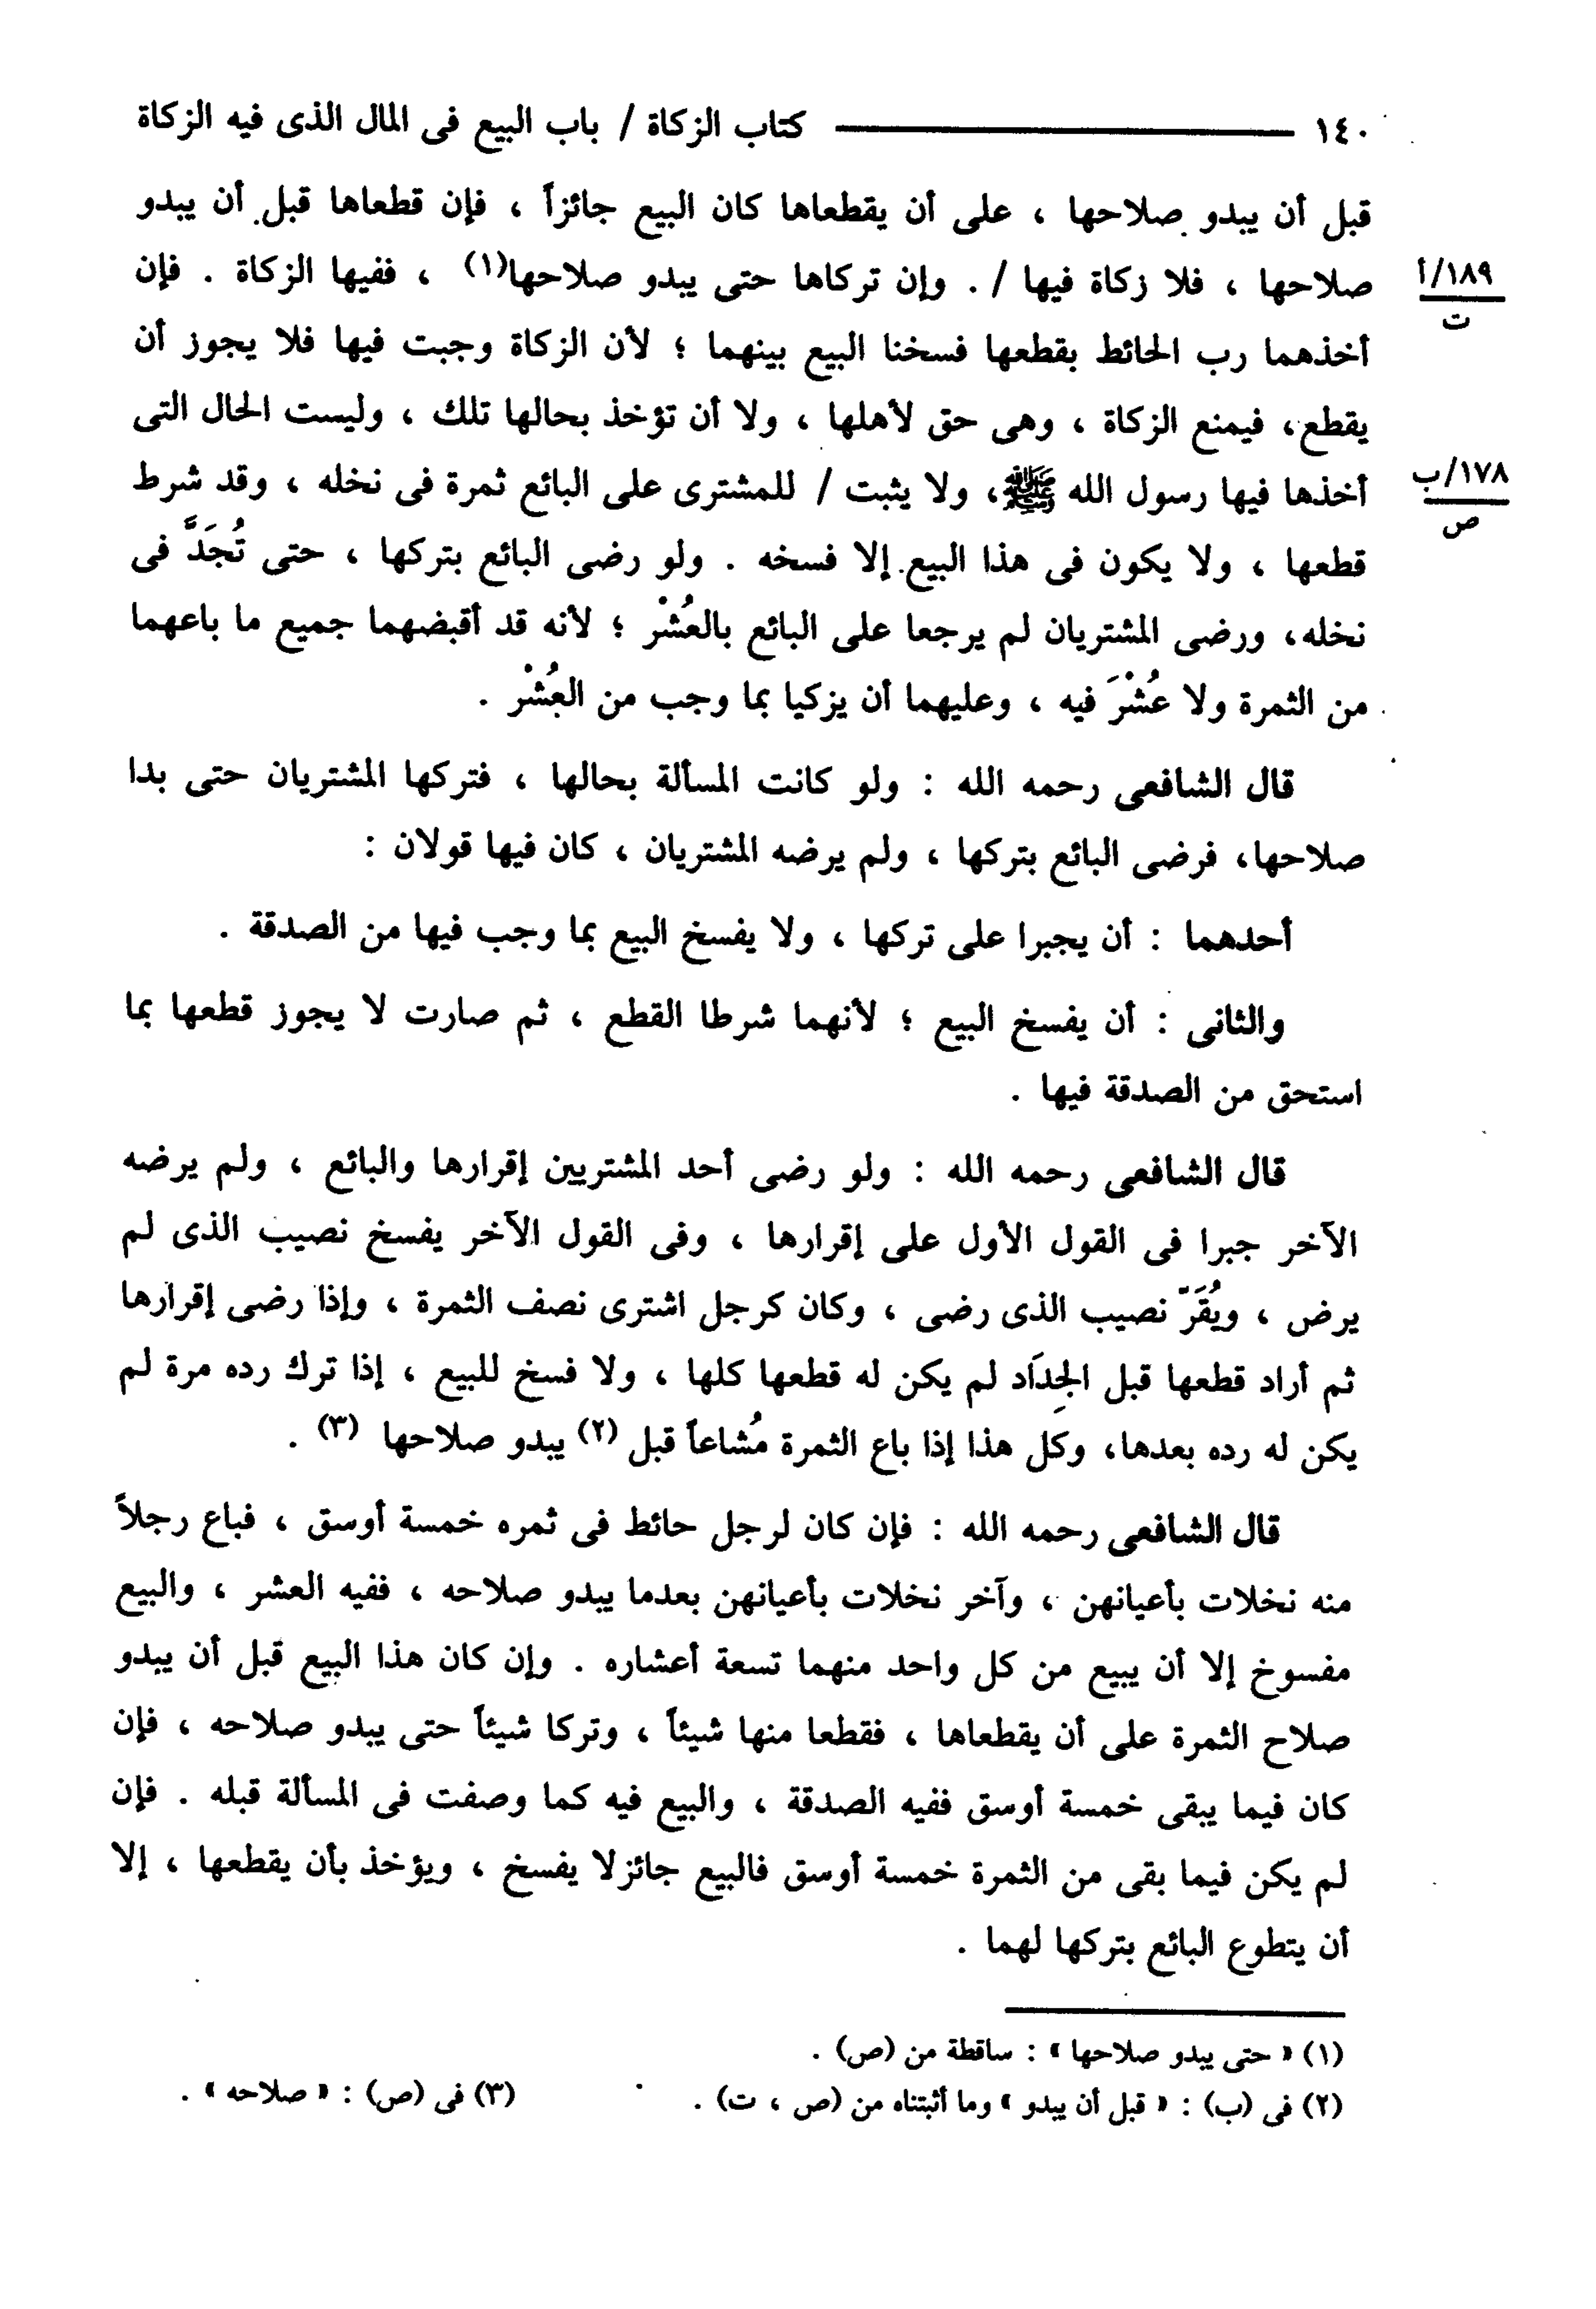 ١٤٠ ــــــــــــــــــ كتاب الزكاة / باب البيع فى المال الذى فيه الزكاة
قبل أن يبدو صلاحها ، على أن يقطعاها كان البيع جائزاً ، فإن قطعاها قبل أن يبدو
صلاحها ، فلا زكاة فيها / . وإن تركاها حتى يبدو صلاحها(١) ، ففيها الزكاة . فإن
١٨٩/أ
ت
أخذهما رب الحائط بقطعها فسخنا البيع بينهما ؛ لأن الزكاة وجبت فيها فلا يجوز أن
يقطع، فيمنع الزكاة ، وهى حق لأهلها ، ولا أن تؤخذ بحالها تلك ، وليست الحال التى
أخذها فيها رسول الله ﷺ، ولا يثبت / للمشترى على البائع ثمرة فى نخله ، وقد شرط
١٧٨/ب
ص
قطعها ، ولا يكون فى هذا البيع إلا فسخه . ولو رضى البائع بتركها ، حتى تُجَدَّ فى
نخله، ورضى المشتريان لم يرجعا على البائع بالعُشْر ؛ لأنه قد أقبضهما جميع ما باعهما
من الثمرة ولا عُشْرَ فيه ، وعليهما أن يزكيا بما وجب من العُشْر .
قال الشافعى رحمه الله : ولو كانت المسألة بحالها ، فتركها المشتريان حتى بدا
صلاحها، فرضى البائع بتركها ، ولم يرضه المشتريان ، كان فيها قولان :
أحدهما : أن يجبرا على تركها ، ولا يفسخ البيع بما وجب فيها من الصدقة .
والثانى : أن يفسخ البيع ؛ لأنهما شرطا القطع ، ثم صارت لا يجوز قطعها بما
استحق من الصدقة فيها .
قال الشافعى رحمه الله : ولو رضى أحد المشتريين إقرارها والبائع ، ولم يرضه
الآخر جبرا فى القول الأول على إقرارها ، وفى القول الآخر يفسخ نصيب الذى لم
يرض ، ويُقَرّ نصيب الذى رضى ، وكان كرجل اشترى نصف الثمرة ، وإذا رضى إقرارها
ثم أراد قطعها قبل الجِدَاد لم يكن له قطعها كلها ، ولا فسخ للبيع ، إذا ترك رده مرة لم
يكن له رده بعدها، وكل هذا إذا باع الثمرة مُشاعاً قبل (٢) يبدو صلاحها (٣) .
قال الشافعى رحمه الله : فإن كان لرجل حائط فى ثمره خمسة أوسق ، فباع رجلاً
منه نخلات بأعيانهن ، وآخر نخلات بأعيانهن بعدما يبدو صلاحه ، ففيه العشر ، والبيع
مفسوخ إلا أن يبيع من كل واحد منهما تسعة أعشاره . وإن كان هذا البيع قبل أن يبدو
صلاح الثمرة على أن يقطعاها ، فقطعا منها شيئاً ، وتركا شيئاً حتى يبدو صلاحه ، فإن
كان فيما يبقى خمسة أوسق ففيه الصدقة ، والبيع فيه كما وصفت فى المسألة قبله . فإن
لم يكن فيما بقى من الثمرة خمسة أوسق فالبيع جائزلا يفسخ ، ويؤخذ بأن يقطعها ، إلا
أن يتطوع البائع بتركها لهما .
(١) « حتى يبدو صلاحها » : ساقطة من (ص) .
(٢) فى (ب) : « قبل أن يبدو » وما أثبتناه من (ص ، ت) .
(٣) فى (ص) : « صلاحه » .